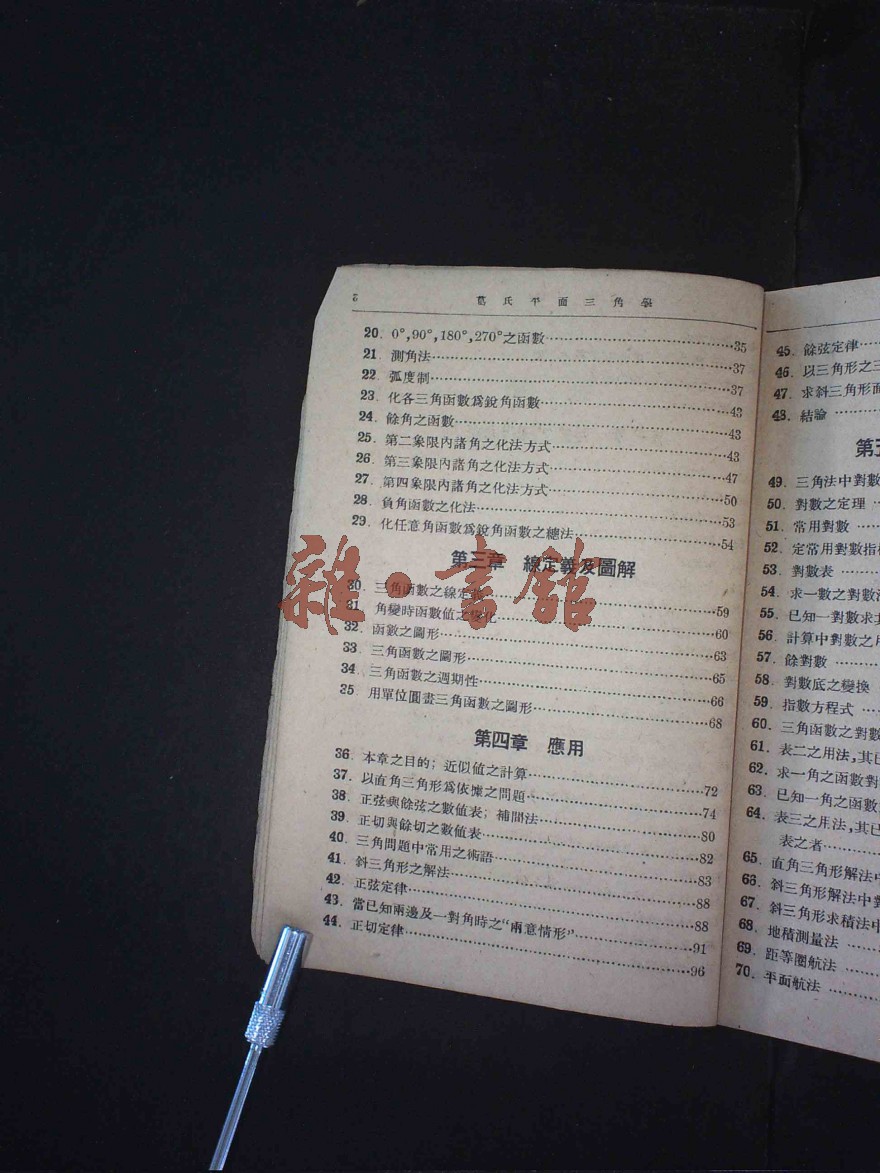 葛氏平面三角學
20. 0°,90°,180°,270°之函數……35
21. 測角法……37
22. 弧度制……37
23. 化各三角函數爲銳角函數……43
24. 餘角之函數……43
25. 第二象限內諸角之化法方式……43
26. 第三象限內諸角之化法方式……47
27. 第四象限內諸角之化法方式……50
28. 負角函數之化法……53
29. 化任意角函數爲銳角函數之總法……54
第三章 線定義及圖解
30. 三角函數之線定義……59
31. 角變時函數值之變化……60
32. 函數之圖形……63
33. 三角函數之圖形……65
34. 三角函數之週期性……66
35. 用單位圓畫三角函數之圖形……68
第四章 應用
36. 本章之目的; 近似值之計算……72
37. 以直角三角形爲依據之問題……74
38. 正弦與餘弦之數值表; 補間法……80
39. 正切與餘切之數值表……82
40. 三角問題中常用之術語……83
41. 斜三角形之解法……88
42. 正弦定律……88
43. 當已知兩邊及一對角時之“兩意情形”……91
44. 正切定律……96
45. 餘弦定律……
46. 以三角形之三
47. 求斜三角形面
48. 結論……
第五
49. 三角法中對數
50. 對數之定理……
51. 常用對數……
52. 定常用對數指標
53. 對數表……
54. 求一數之對數法
55. 已知一對數求其
56. 計算中對數之用
57. 餘對數……
58. 對數底之變換
59. 指數方程式……
60. 三角函數之對數
61. 表二之用法,其已
62. 求一角之函數對
63. 已知一角之函數
64. 表三之用法,其已
表之者……
65. 直角三角形解法中
66. 斜三角形解法中對
67. 斜三角形求積法中
68. 地積測量法……
69. 距等圈航法……
70. 平面航法……
雜·書館